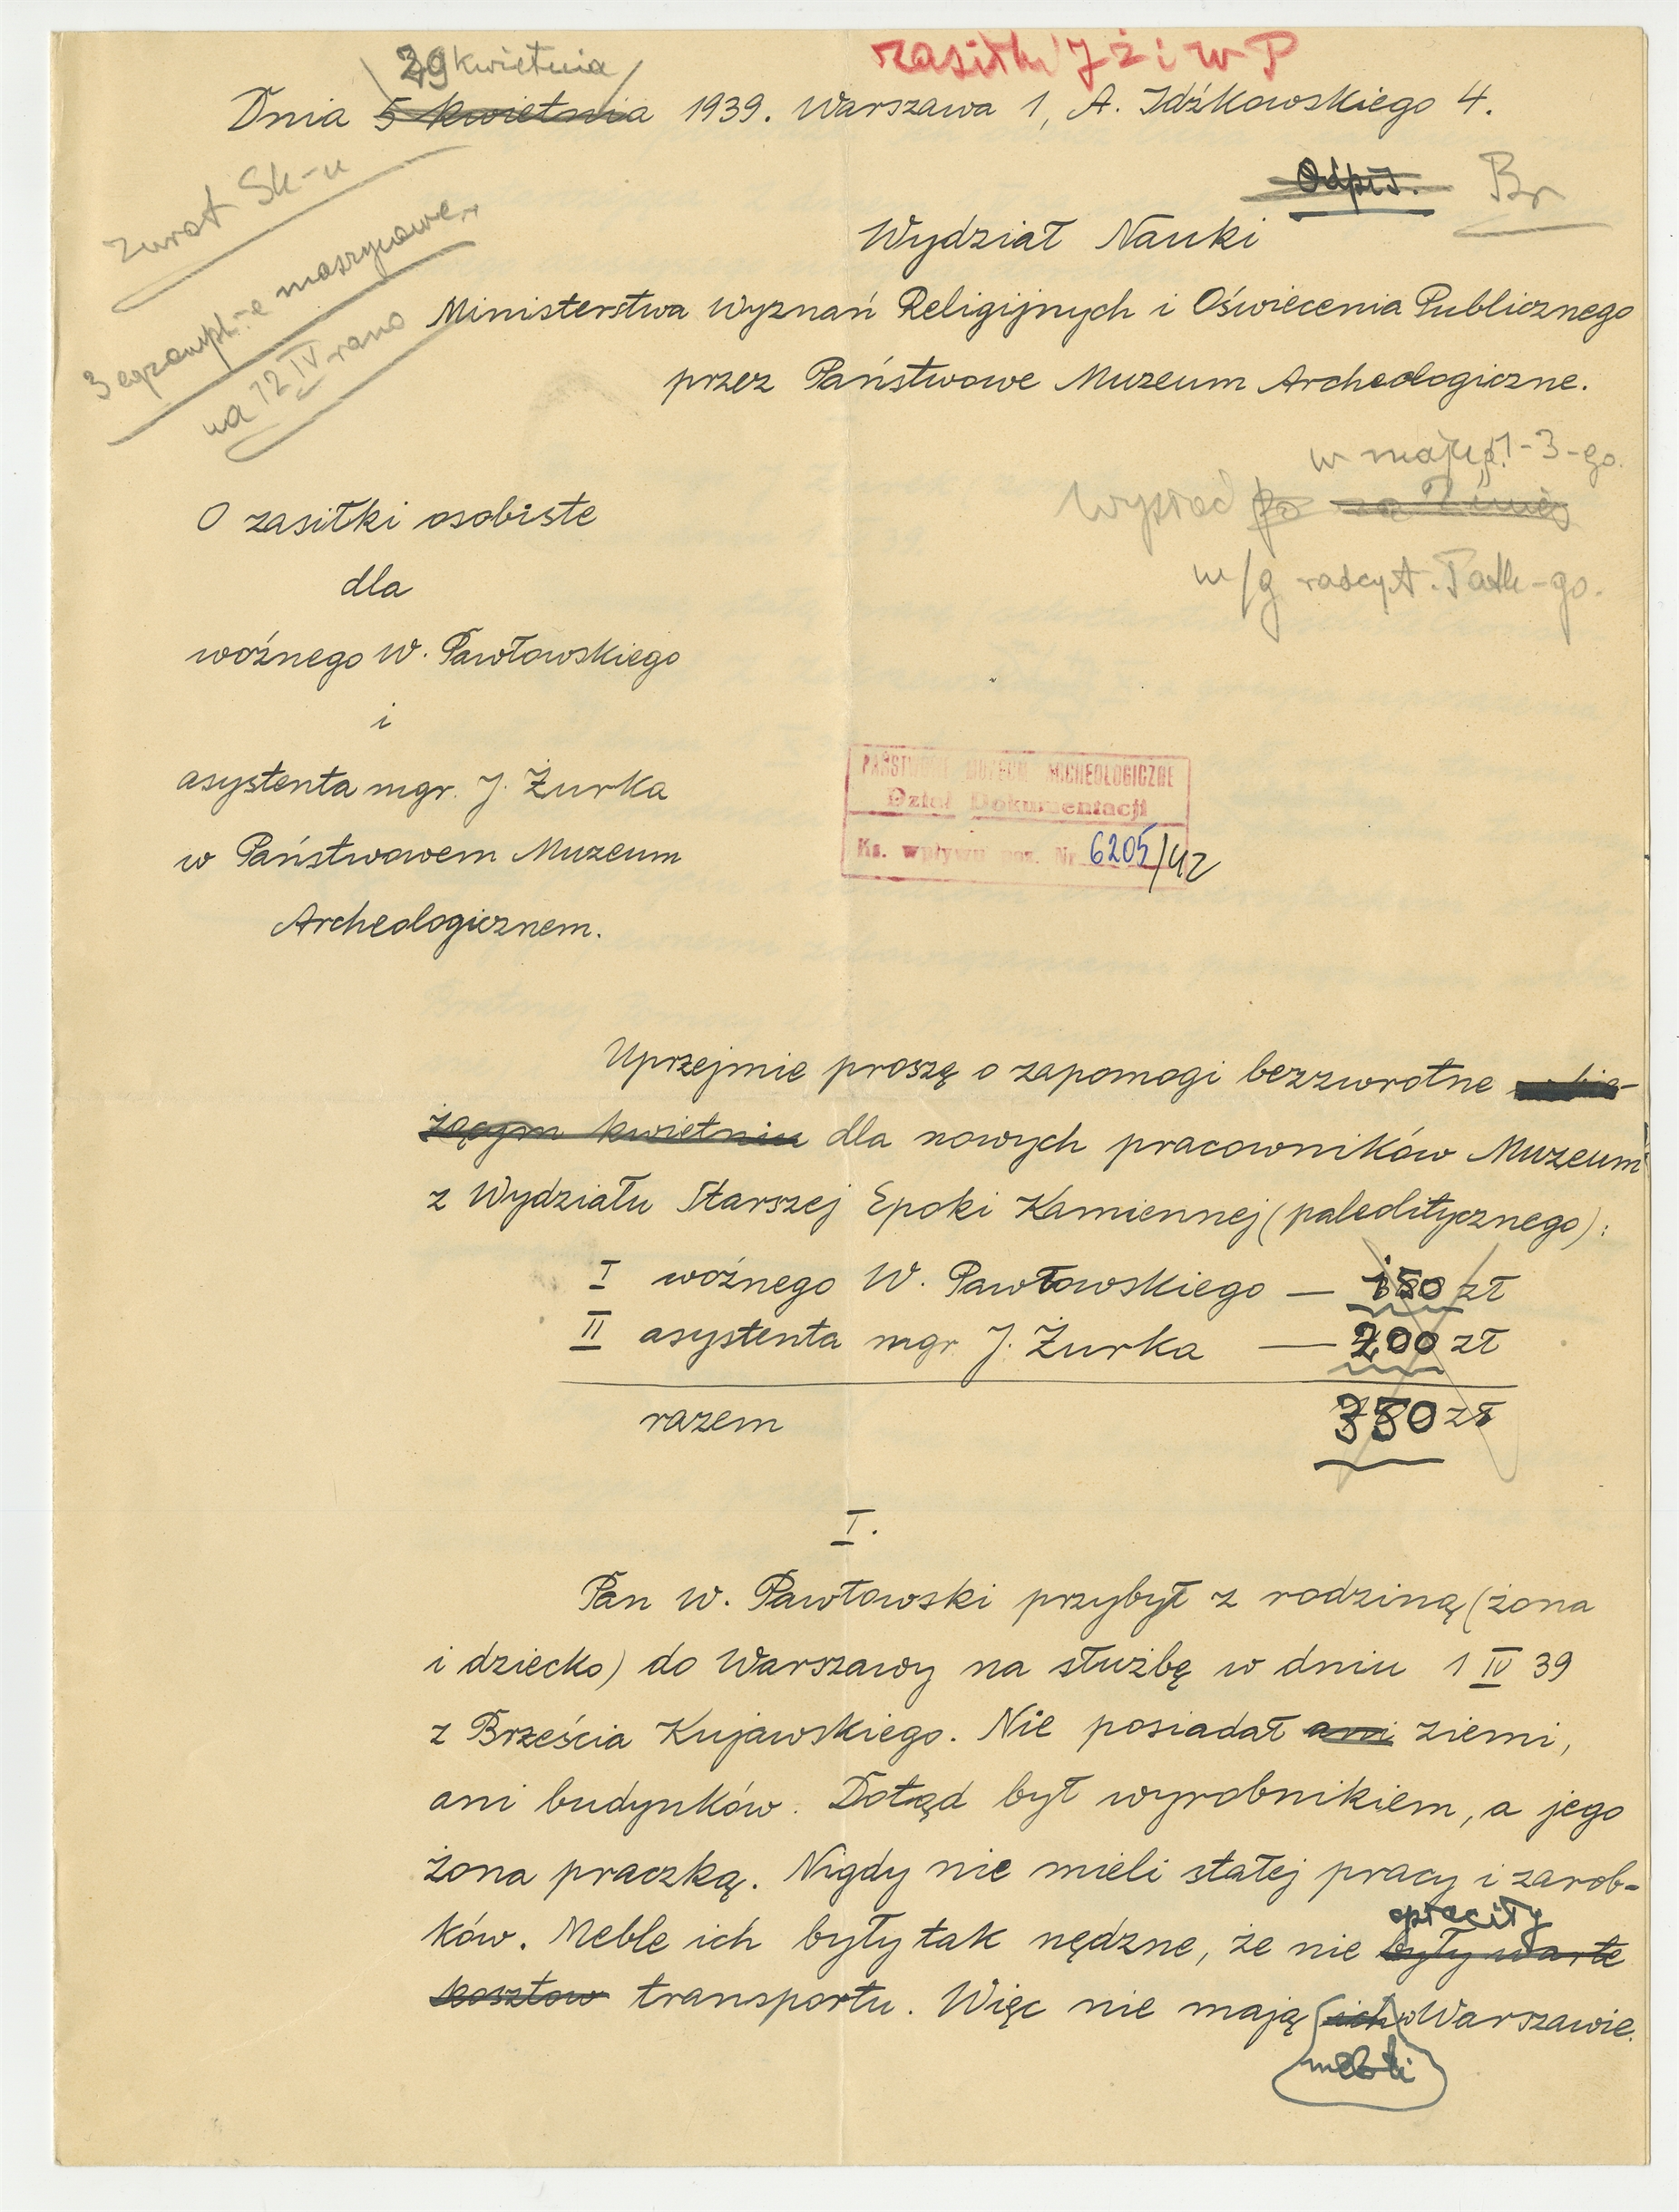 29 kwietnia
zasiłki J Ż i W P
Dnia 5 kwietnia 1939. Warszawa 1, A. Idźkowskiego 4.
Odpis. Br
zwrot Sk-u
Wydział Nauki
3 egzempl-e maszynowe
na 12 IV rano
Ministerstwa Wyznań Religijnych i Oświecenia Publicznego
przez Państwowe Muzeum Archeologiczne.
w maju 1-3-go.
O zasiłki osobiste
dla
woźnego W. Pawłowskiego
i
asystenta mgr. J. Żurka
w Państwowem Muzeum
Archeologicznem.
PAŃSTWOWE MUZEUM ARCHEOLOGICZNE
Dział Dokumentacji
Ks. wpływu poz. Nr 6205/42
Uprzejmie proszę o zapomogi bezzwrotne w bie-
żącym kwietniu dla nowych pracowników Muzeum
z Wydziału Starszej Epoki Kamiennej (paleolitycznego):
I woźnego W. Pawłowskiego — 150 zł
II asystenta mgr. J. Żurka — 200 zł
razem 350 zł
I.
Pan W. Pawłowski przybył z rodziną (żona
i dziecko) do Warszawy na służbę w dniu 1 IV 39
z Brześcia Kujawskiego. Nie posiadał ani ziemi,
ani budynków. Dotąd był wyrobnikiem, a jego
żona praczką. Nigdy nie mieli stałej pracy i zarob-
opłaciły
ków. Meble ich były tak nędzne, że nie były warte
kosztów transportu. Więc nie mają ich w Warszawie.
mebli